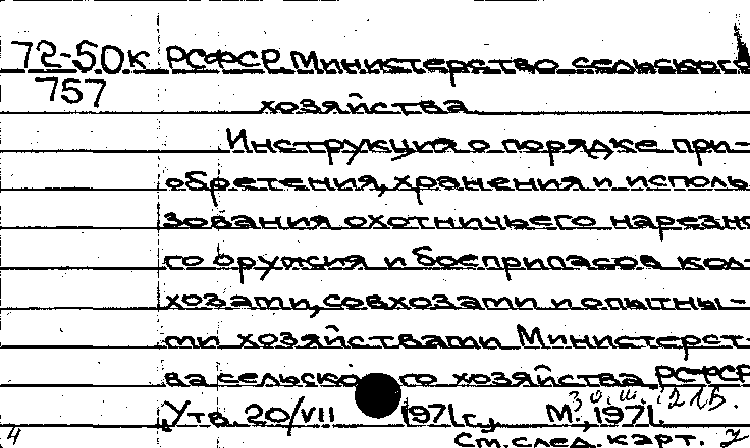 72-50к РСФСР Министерство сельского
757
хозяйства
Инструкция о порядке при-
обретения, хранения и исполь
зования охотничьего нарезно
го оружия и боеприпасов кол-
хозами, совхозами и опытны-
ми хозяйствами Министерст-
ва сельского хозяйства РСФСР
Утв. 20/VII 1971 г., М., 1971.
4 См. след. карт.